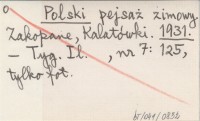 Polski pejsaż zimowy.
Zakopane, Kalatówki. 1931.
– Tyg. Il. , nr 7: 125,
tylko fot.